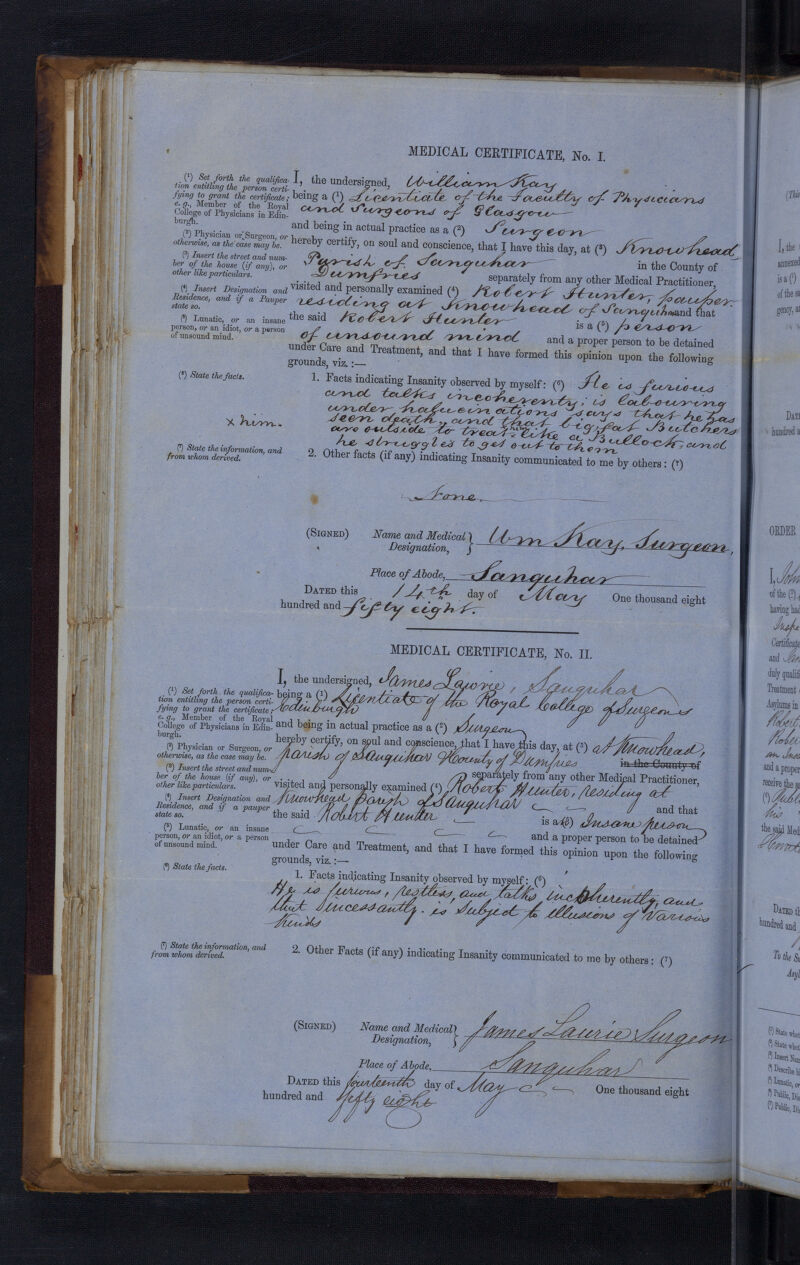 MEDICAL CERTIFICATE, No. I.
(¹) Set forth the qualifica-
tion entitling the person certi-
fying to grant the certificate;
e.g., Member of the Royal
College of Physicians in Edin-
burgh.
(²) Physician or Surgeon, or
otherwise, as the case may be.
(³) Insert the street and num-
ber of the house (if any), or
other like particulars.
(⁴) Insert Designation and
Residence, and if a Pauper
state so.
(⁵) Lunatic, or an insane
person, or an idiot, or a person
of unsound mind.
(⁶) State the facts.
x him.
(⁷) State the information, and
from whom derived.
I, the undersigned, William Kay
being a (¹) Licentiate of the Faculty of Physicians
and Surgeons of Glasgow
and being in actual practice as a (²) Surgeon
hereby certify, on soul and conscience, that I have this day, at (³) Knowhead
Parish of Sanquhar in the County of
Dumfries separately from any other Medical Practitioner,
visited and personally examined (⁴) Robert Hunter, pauper.
residing at Knowhead of Sanquhar and that
the said Robert Hunter is a (⁵) person
of unsound mind and a proper person to be detained
under Care and Treatment, and that I have formed this opinion upon the following
grounds, viz.:—
1. Facts indicating Insanity observed by myself: (⁶) He is furious
and talks incoherenty; is labouring
under halucinations says that he has
seen death, and that big fat Butchers
are outside to treat x like a Bullock, and
he struggles to get out to them
2. Other facts (if any) indicating Insanity communicated to me by others: (⁷)
None.
(SIGNED) Name and Medical Designation, } Wm Kay, Surgeon,
Place of Abode, Sanquhar
DATED this 14th day of May One thousand eight
hundred and fifty eight.
MEDICAL CERTIFICATE, No. II.
(¹) Set forth the qualifica-
tion entitling the person certi-
fying to grant the certificate;
e.g., Member of the Royal
College of Physicians in Edin-
burgh.
(²) Physician or Surgeon, or
otherwise, as the case may be.
(³) Insert the street and num-
ber of the house (if any), or
other like particulars.
(⁴) Insert Designation and
Residence, and if a pauper
state so.
(⁵) Lunatic, or an insane
person, or an idiot, or a person
of unsound mind.
(⁶) State the facts.
(⁷) State the information, and
from whom derived.
I, the undersigned, James Laurie, Sanquhar
being a (¹) Licentiate of the Royal College of Surgeons
Edinburgh
and being in actual practice as a (²) Surgeon
hereby certify, on soul and conscience, that I have this day, at (³) at Knowhead,
parish of Sanquhar & County of Dumfries in the County of
separately from any other Medical Practitioner,
visited and personally examined (⁴) Robert Hunter, residing at
Knowhead Parish of Sanquhar and that
the said Robert Hunter is a (⁵) Insane person
and a proper person to be detained
under Care and Treatment, and that I have formed this opinion upon the following
grounds, viz.:—
1. Facts indicating Insanity observed by myself: (⁶)
He is furious, restless, and talks incoherently, and
that incessantly. is Subject to illusions of various
kinds
2. Other Facts (if any) indicating Insanity communicated to me by others: (⁷)
(SIGNED) Name and Medical Designation, } James Laurie Surgeon
Place of Abode, Sanquhar
DATED this fourteenth day of May One thousand eight
hundred and fifty eight
ORDER
I, John
of the (²)
having had
Certificate
and
duly qualif
Treatment
Asylums in
Robert
and a proper
receive the
his
the said Med
DATED th
hundred and
To the Su
Asyl